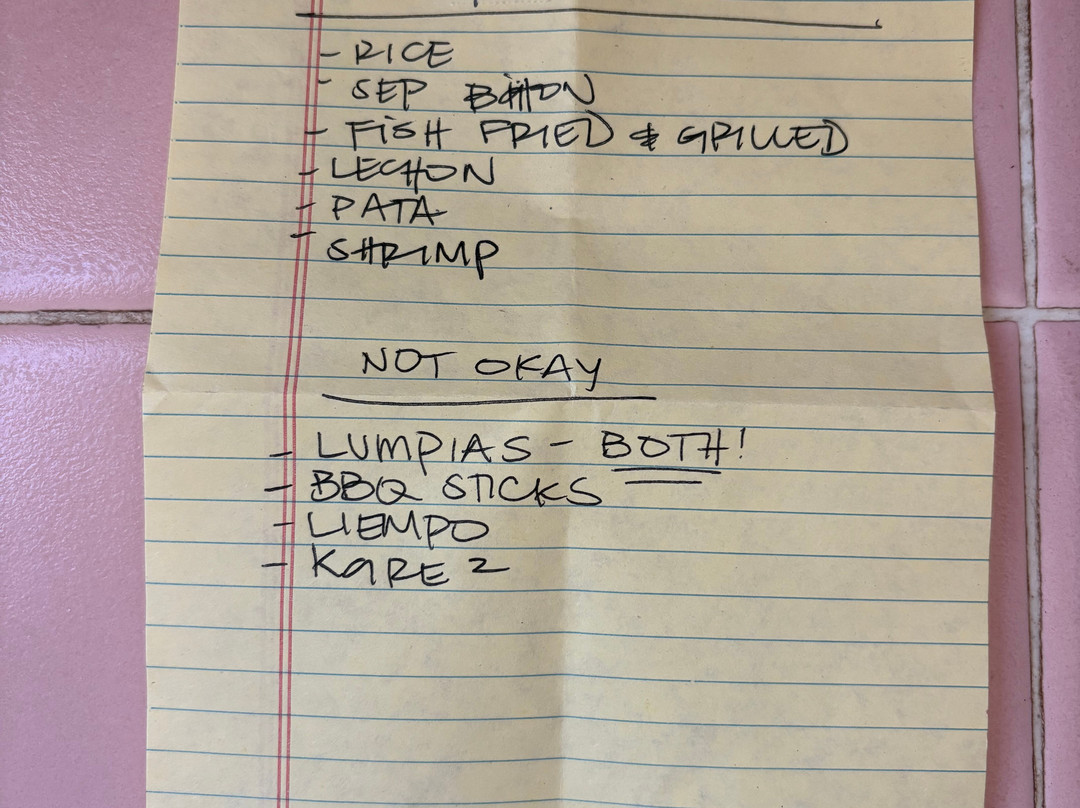 - RICE
- SEP BIHON
- FISH FRIED & GRILLED
- LECHON
- PATA
- SHRIMP
NOT OKAY
- LUMPIAS - BOTH!
- BBQ STICKS
- LIEMPO
- KARE 2